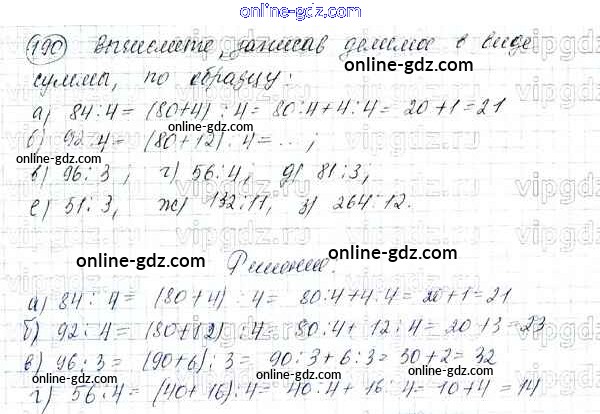 online-gdz.com
190) Вычислите, записав делимое в виде
суммы, по образцу:
а) 84:4 = (80+4):4 = 80:4+4:4 = 20+1=21
б) 92:4 = (80+12):4 = ...;
online-gdz.com
online-gdz.com
в) 96:3; г) 56:4; д) 81:3;
online-gdz.com
е) 51:3, ж) 132:11, з) 264:12.
vipgdz.ru
online-gdz.com
online-gdz.com
Решение.
а) 84:4 = (80+4):4 = 80:4+4:4 = 20+1=21
б) 92:4 = (80+12):4 = 80:4+12:4 = 20+3=23
в) 96:3 = (90+6):3 = 90:3+6:3 = 30+2=32
г) 56:4 = (40+16):4 = 40:4+16:4 = 10+4=14
online-gdz.com
online-gdz.com